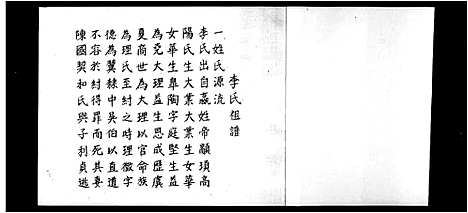 李氏祖譜
一姓氏源流
李氏出自嬴姓帝顓頊高
陽氏生大業大業生女華
女華生皋陶字庭堅生益
為堯大理益生恩成歷虞
夏商世為大理以官命族
為理氏至紂之時理徵字
德為翼隸中吳伯以直道
不容於紂得罪而死其妻
陳國契和氏與子利貞逃